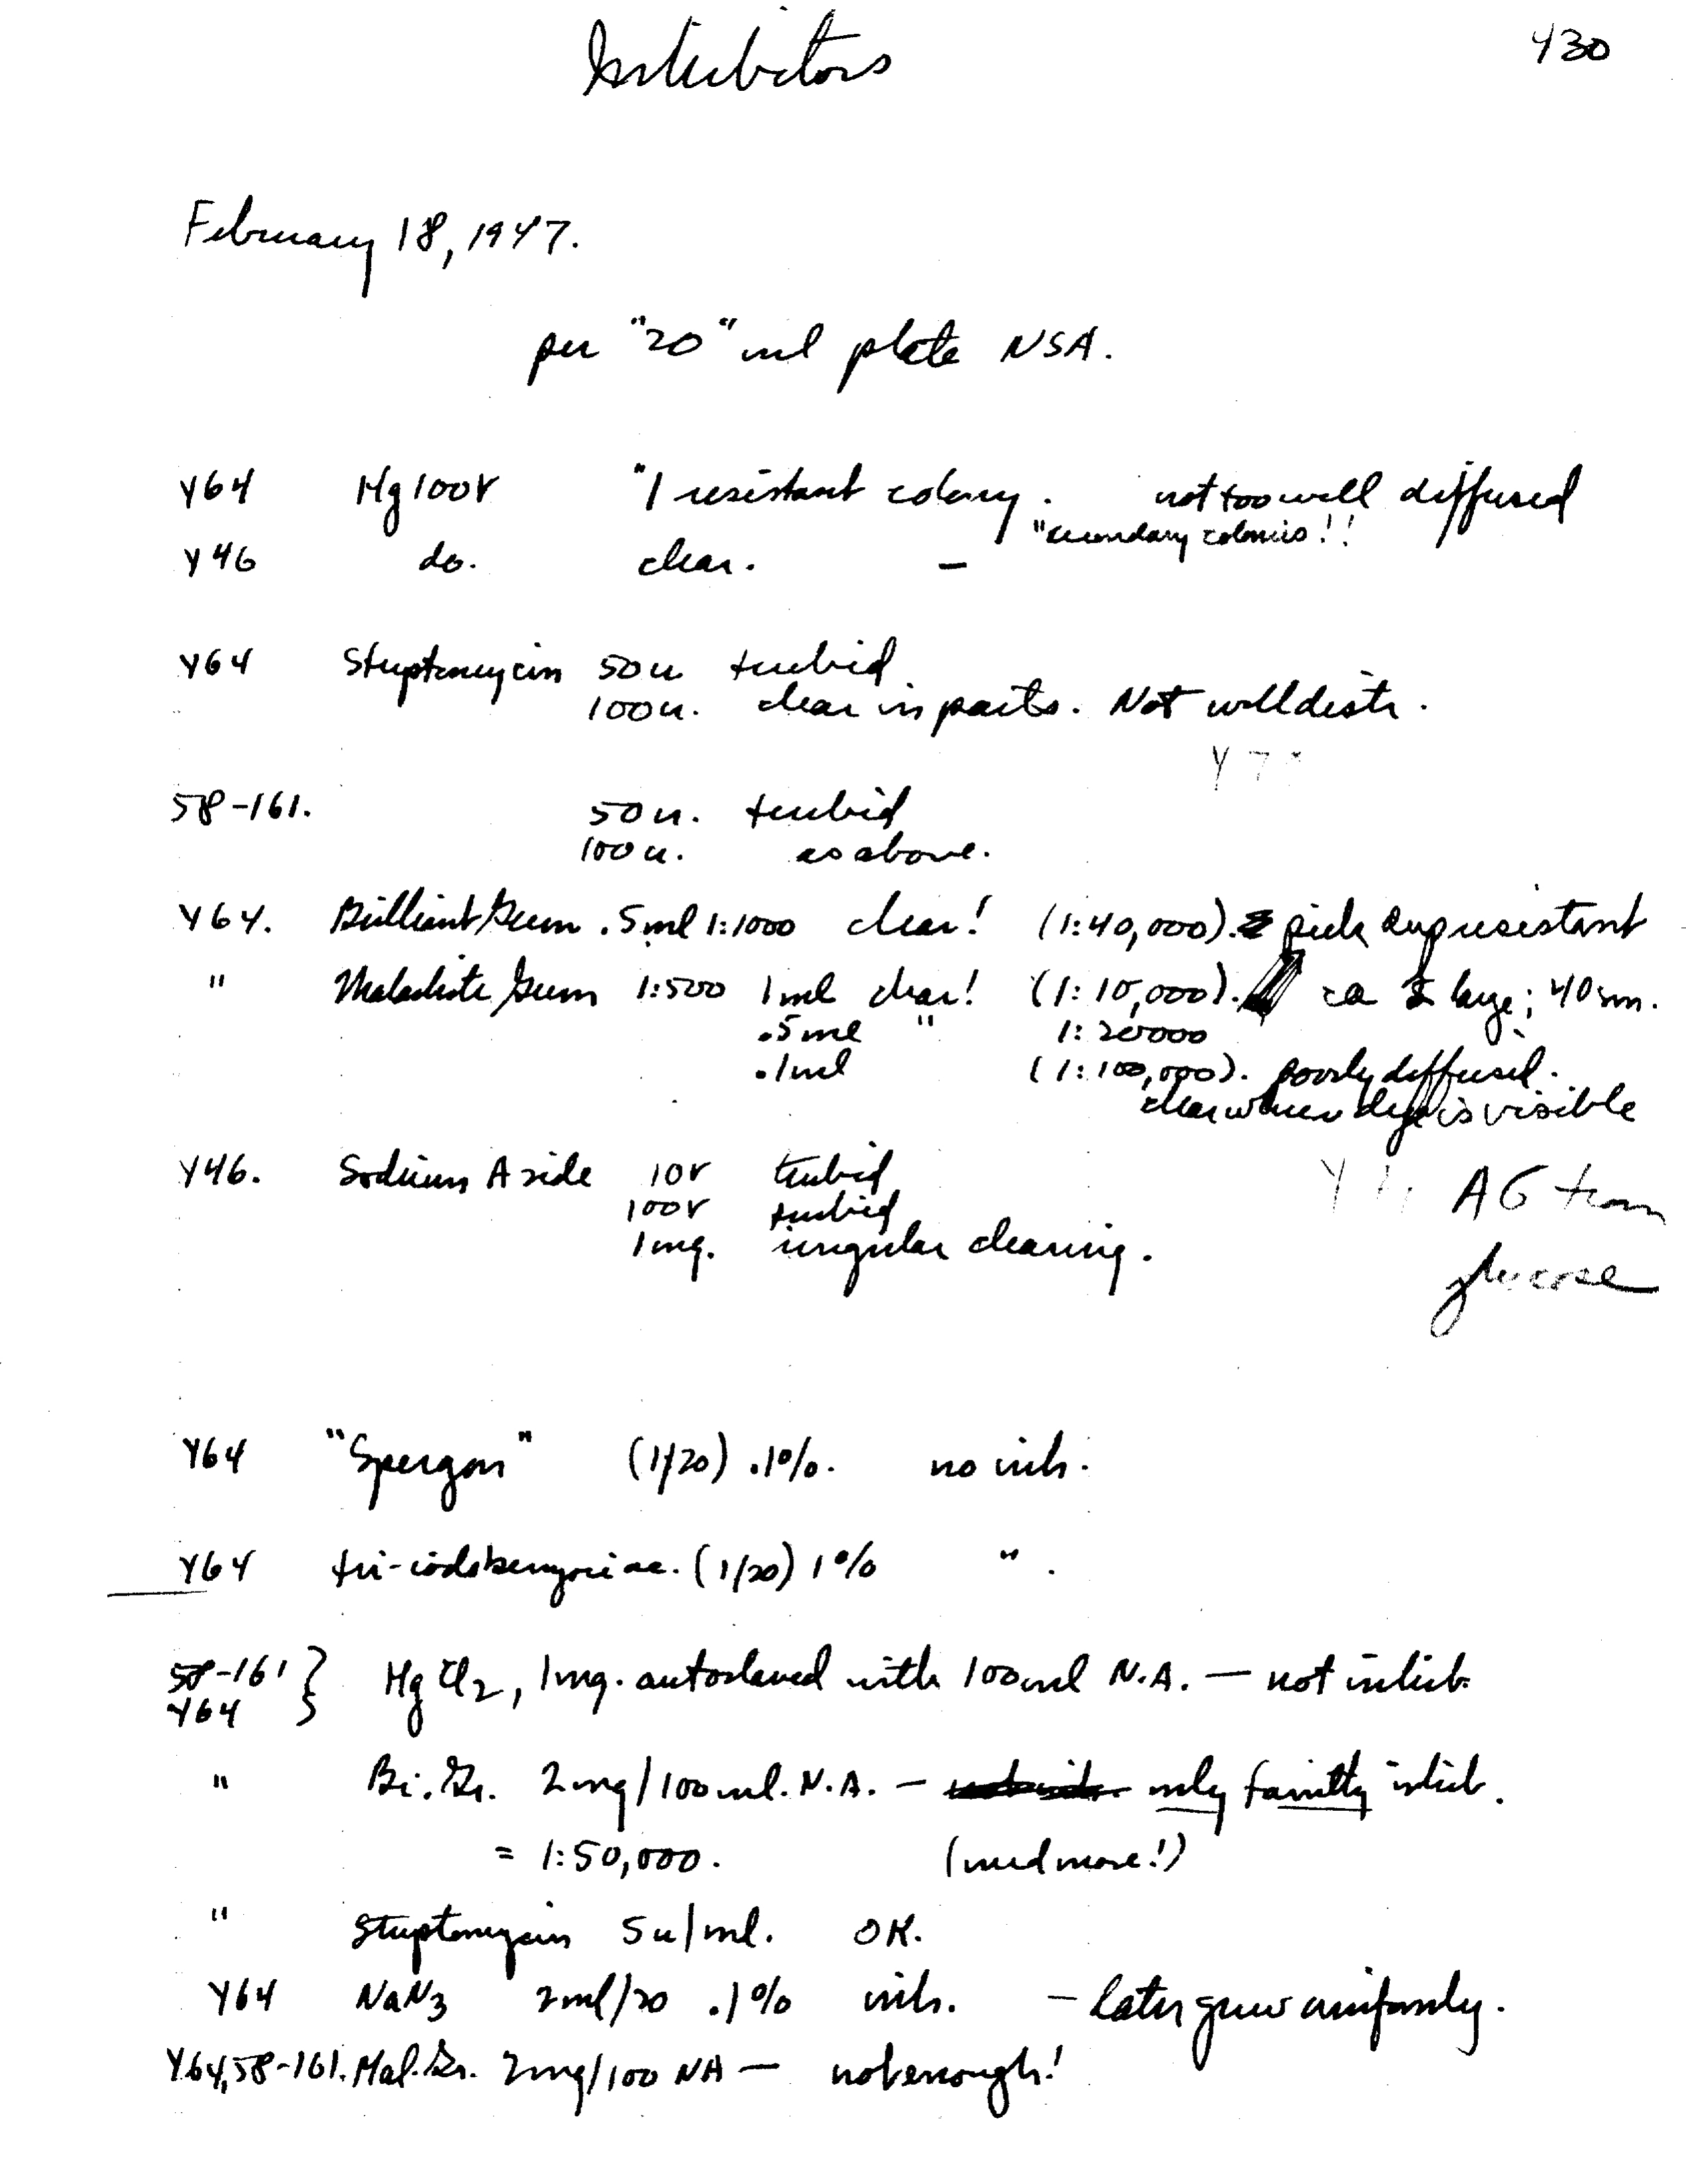 Inhibitors 430
February 18, 1947.
per "20" ml plate NSA.
Y64 Hg 100γ "1 resistant colony. not too well diffused
"secondary colonies!!
Y46 do. clear. —
Y64 Streptomycin 50u turbid
100u. clear in parts. Not well distr.
Y 7
58-161. 50u. turbid
100u. as above.
Y64. Brilliant Green .5ml 1:1000 clear! (1:40,000). pick resistant
" Malachite Green 1:500 1ml clear! (1:10,000). ca large; 40 sm.
.5ml " 1:20000
.1ml (1:100,000). poorly diffused.
clear where dye is visible
Y46. Sodium Azide 10γ turbid
100γ turbid
1mg. irregular clearing.
AG from
glucose
Y64 "Spergon" (1/20) .1%. no inh.
Y64 tri-iodobenzoic ac. (1/20) 1% ".
58-161 }
Y64 } HgCl2, 1mg. autoclaved with 100ml N.A. — not inhib.
" Br. Gr. 2mg/100ml. N.A. — only faintly inhib.
= 1:50,000. (need more!)
" Streptomycin 5u/ml. OK.
Y64 NaN3 2ml/20 .1% inh. — later grew uniformly.
Y64, 58-161. Mal. Gr. 2mg/100 NA — not enough!